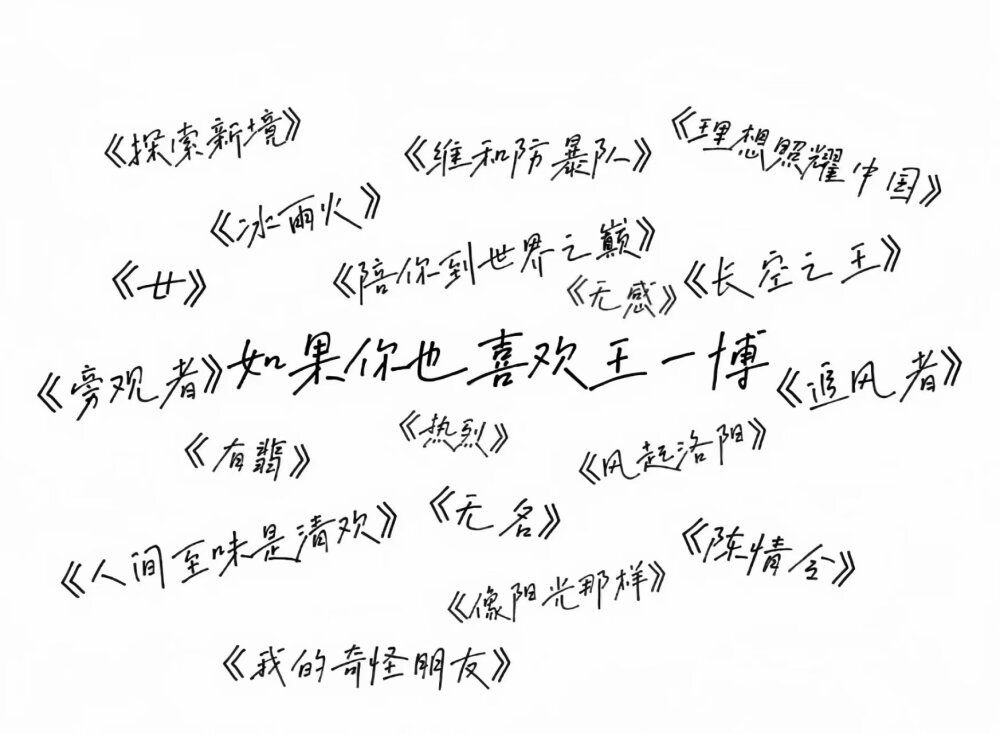 《探索新境》
《维和防暴队》
《理想照耀中国》
《冰雨火》
《廿》
《陪你到世界之巅》
《无感》
《长空之王》
《旁观者》
如果你也喜欢王一博
《追风者》
《有翡》
《热烈》
《风起洛阳》
《人间至味是清欢》
《无名》
《陈情令》
《像阳光那样》
《我的奇怪朋友》